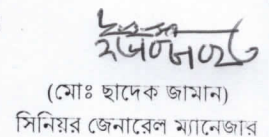 (মোঃ ছাদেক জামান)
সিনিয়র জেনারেল ম্যানেজার